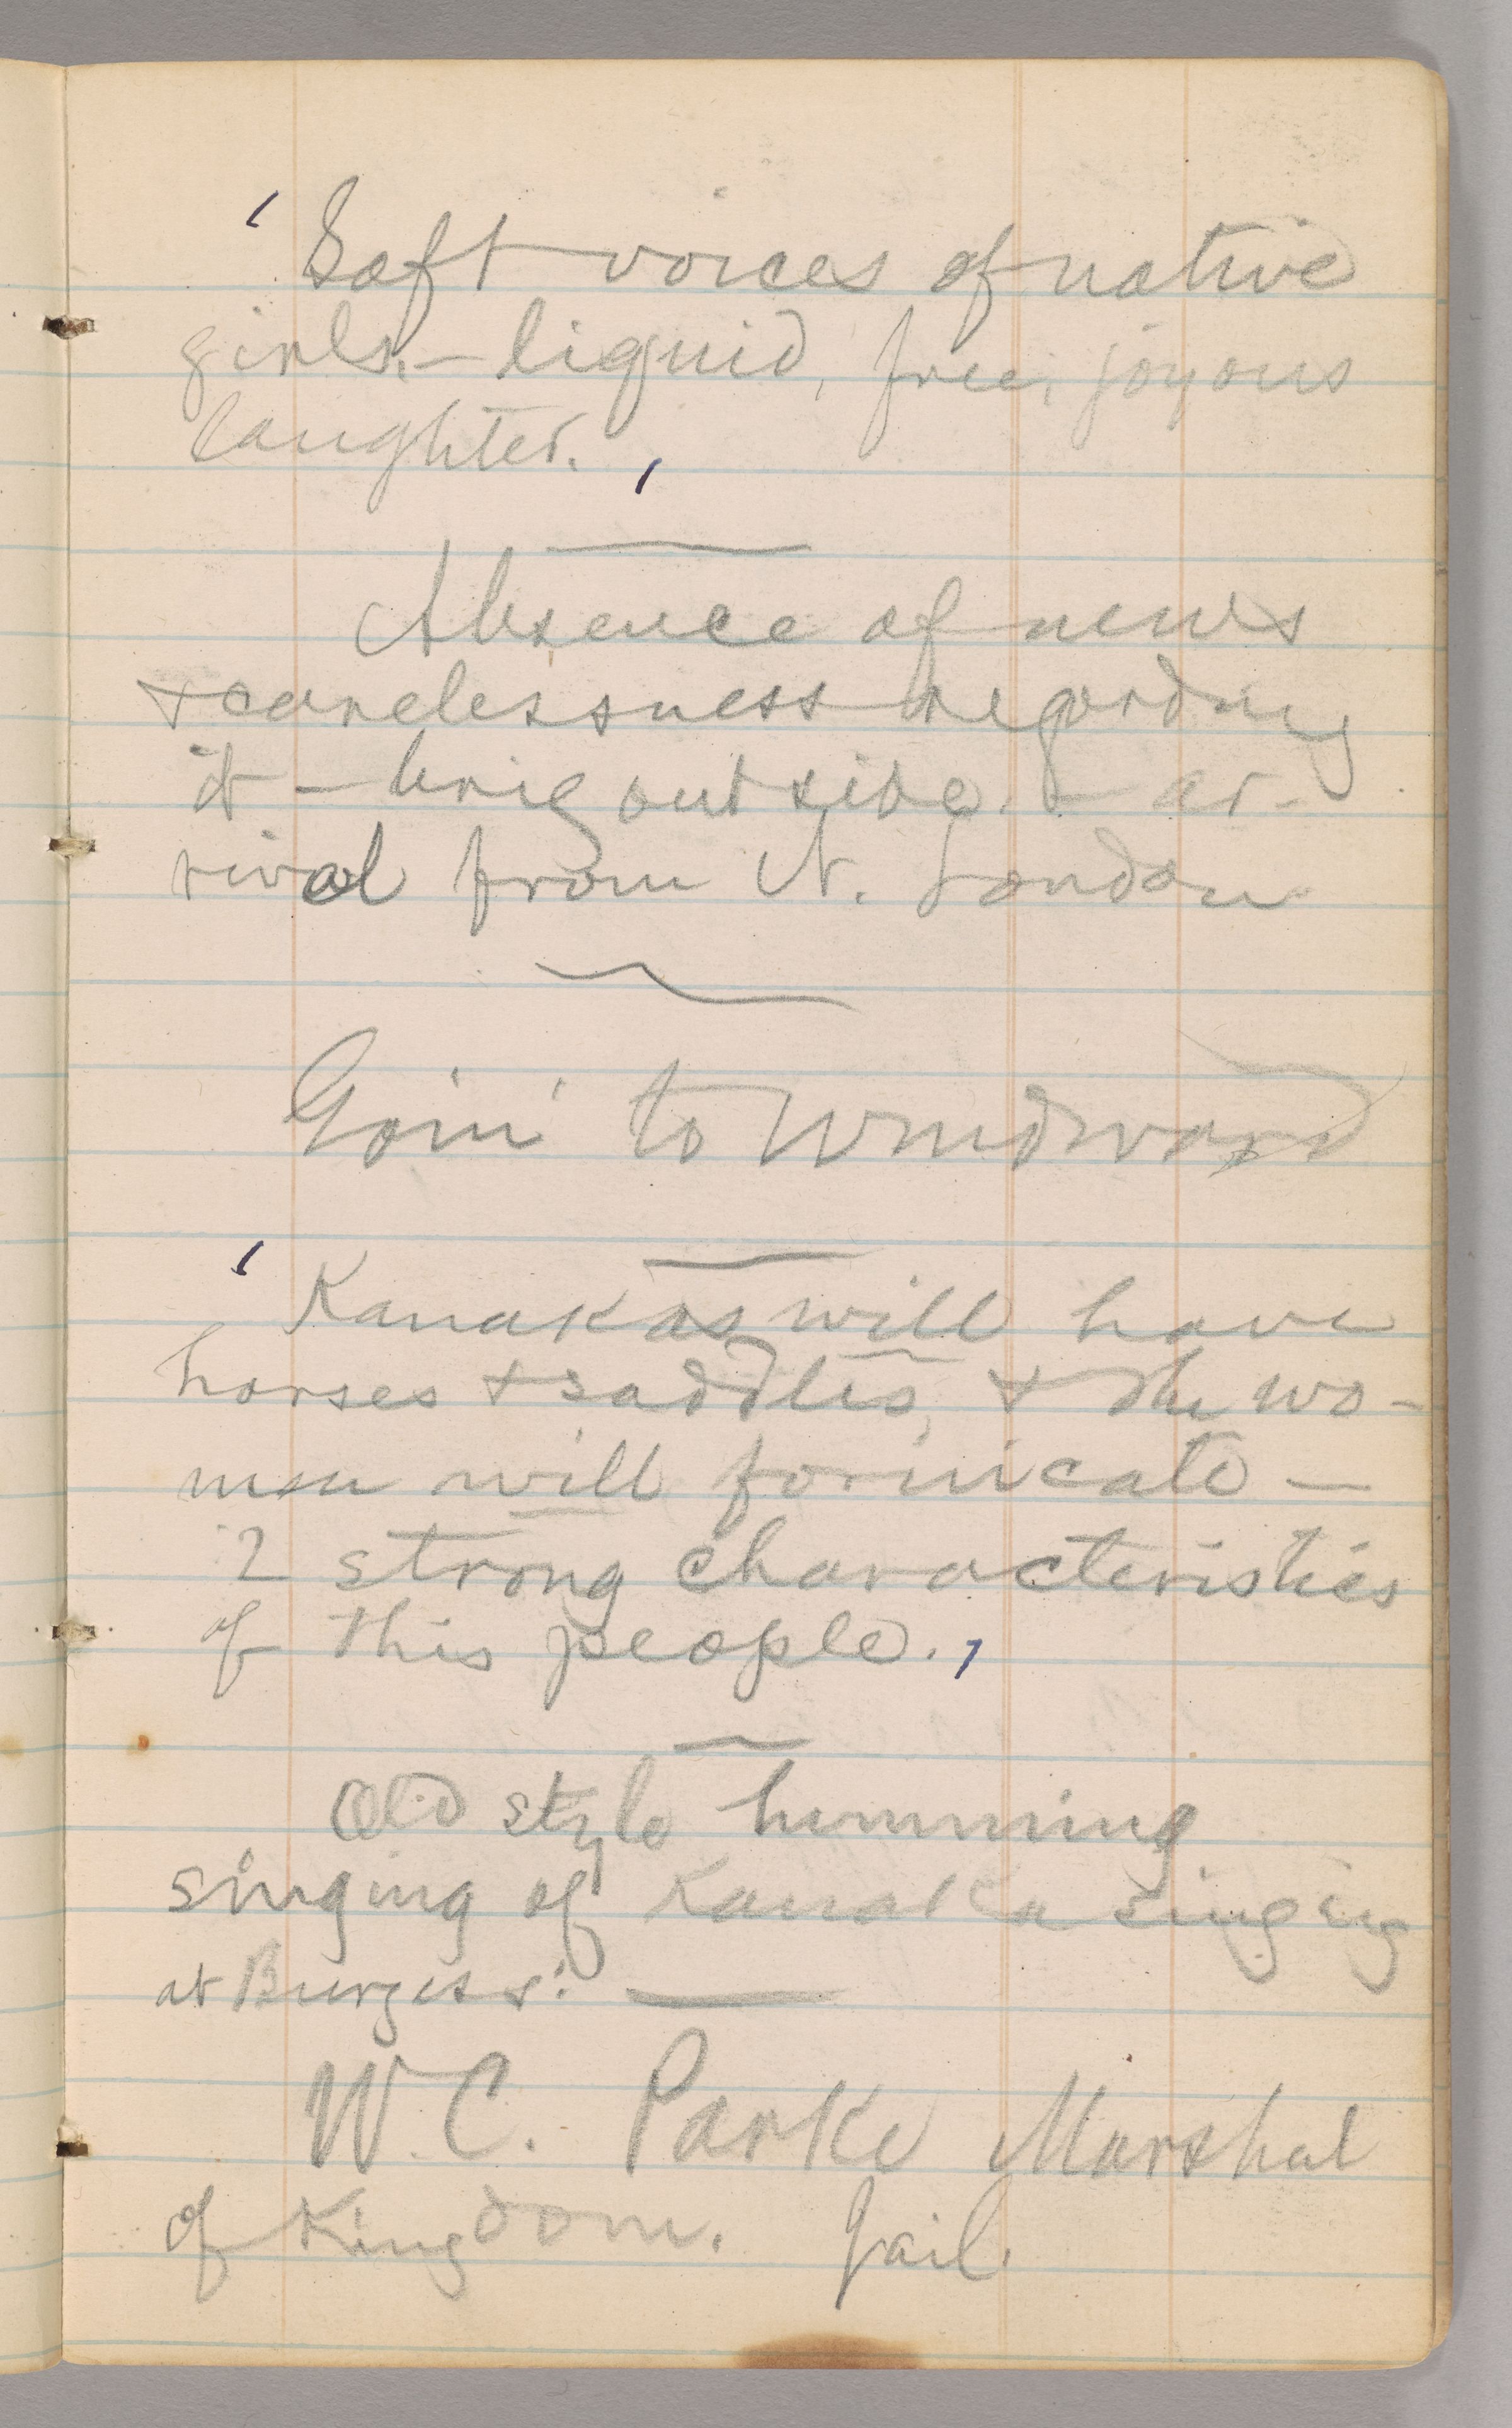 Soft voices of native
girls.—liquid, free, joyous
laughter.
Absence of news
& carelessness regarding
it—brig outside.—ar-
rival from N. London
Goin' to Windward
Kanakas will have
horses & saddles, & the wo-
men will fornicate—
2 strong characteristics
of this people.
Old style humming
singing of Kanaka singing
at Burgess'.
W. C. Parke Marshal
of Kingdom. Jail.